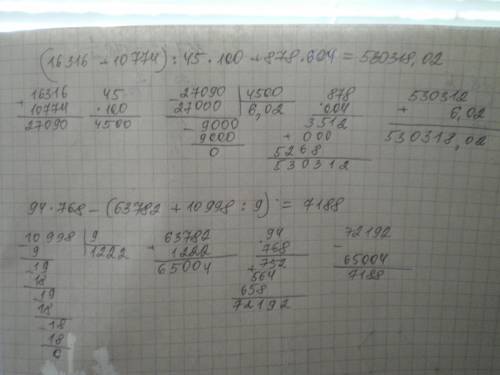 (16316 + 10774) : 45 · 100 + 878 · 604 = 530318,02
+ 16316 45 27090 4500 878 530312
10774 · 100 27000 6,02 · 604 + 6,02
27090 4500 - 9000 3512 530318,02
9000 + 000
0 5268
530312
94 · 768 - (63782 + 10998 : 9) = 7188
- 10998 9 + 63782 · 94 - 72192
9 1222 1222 768 65004
- 19 65004 + 752 7188
18 564
- 19 658
18 72192
- 18
18
0